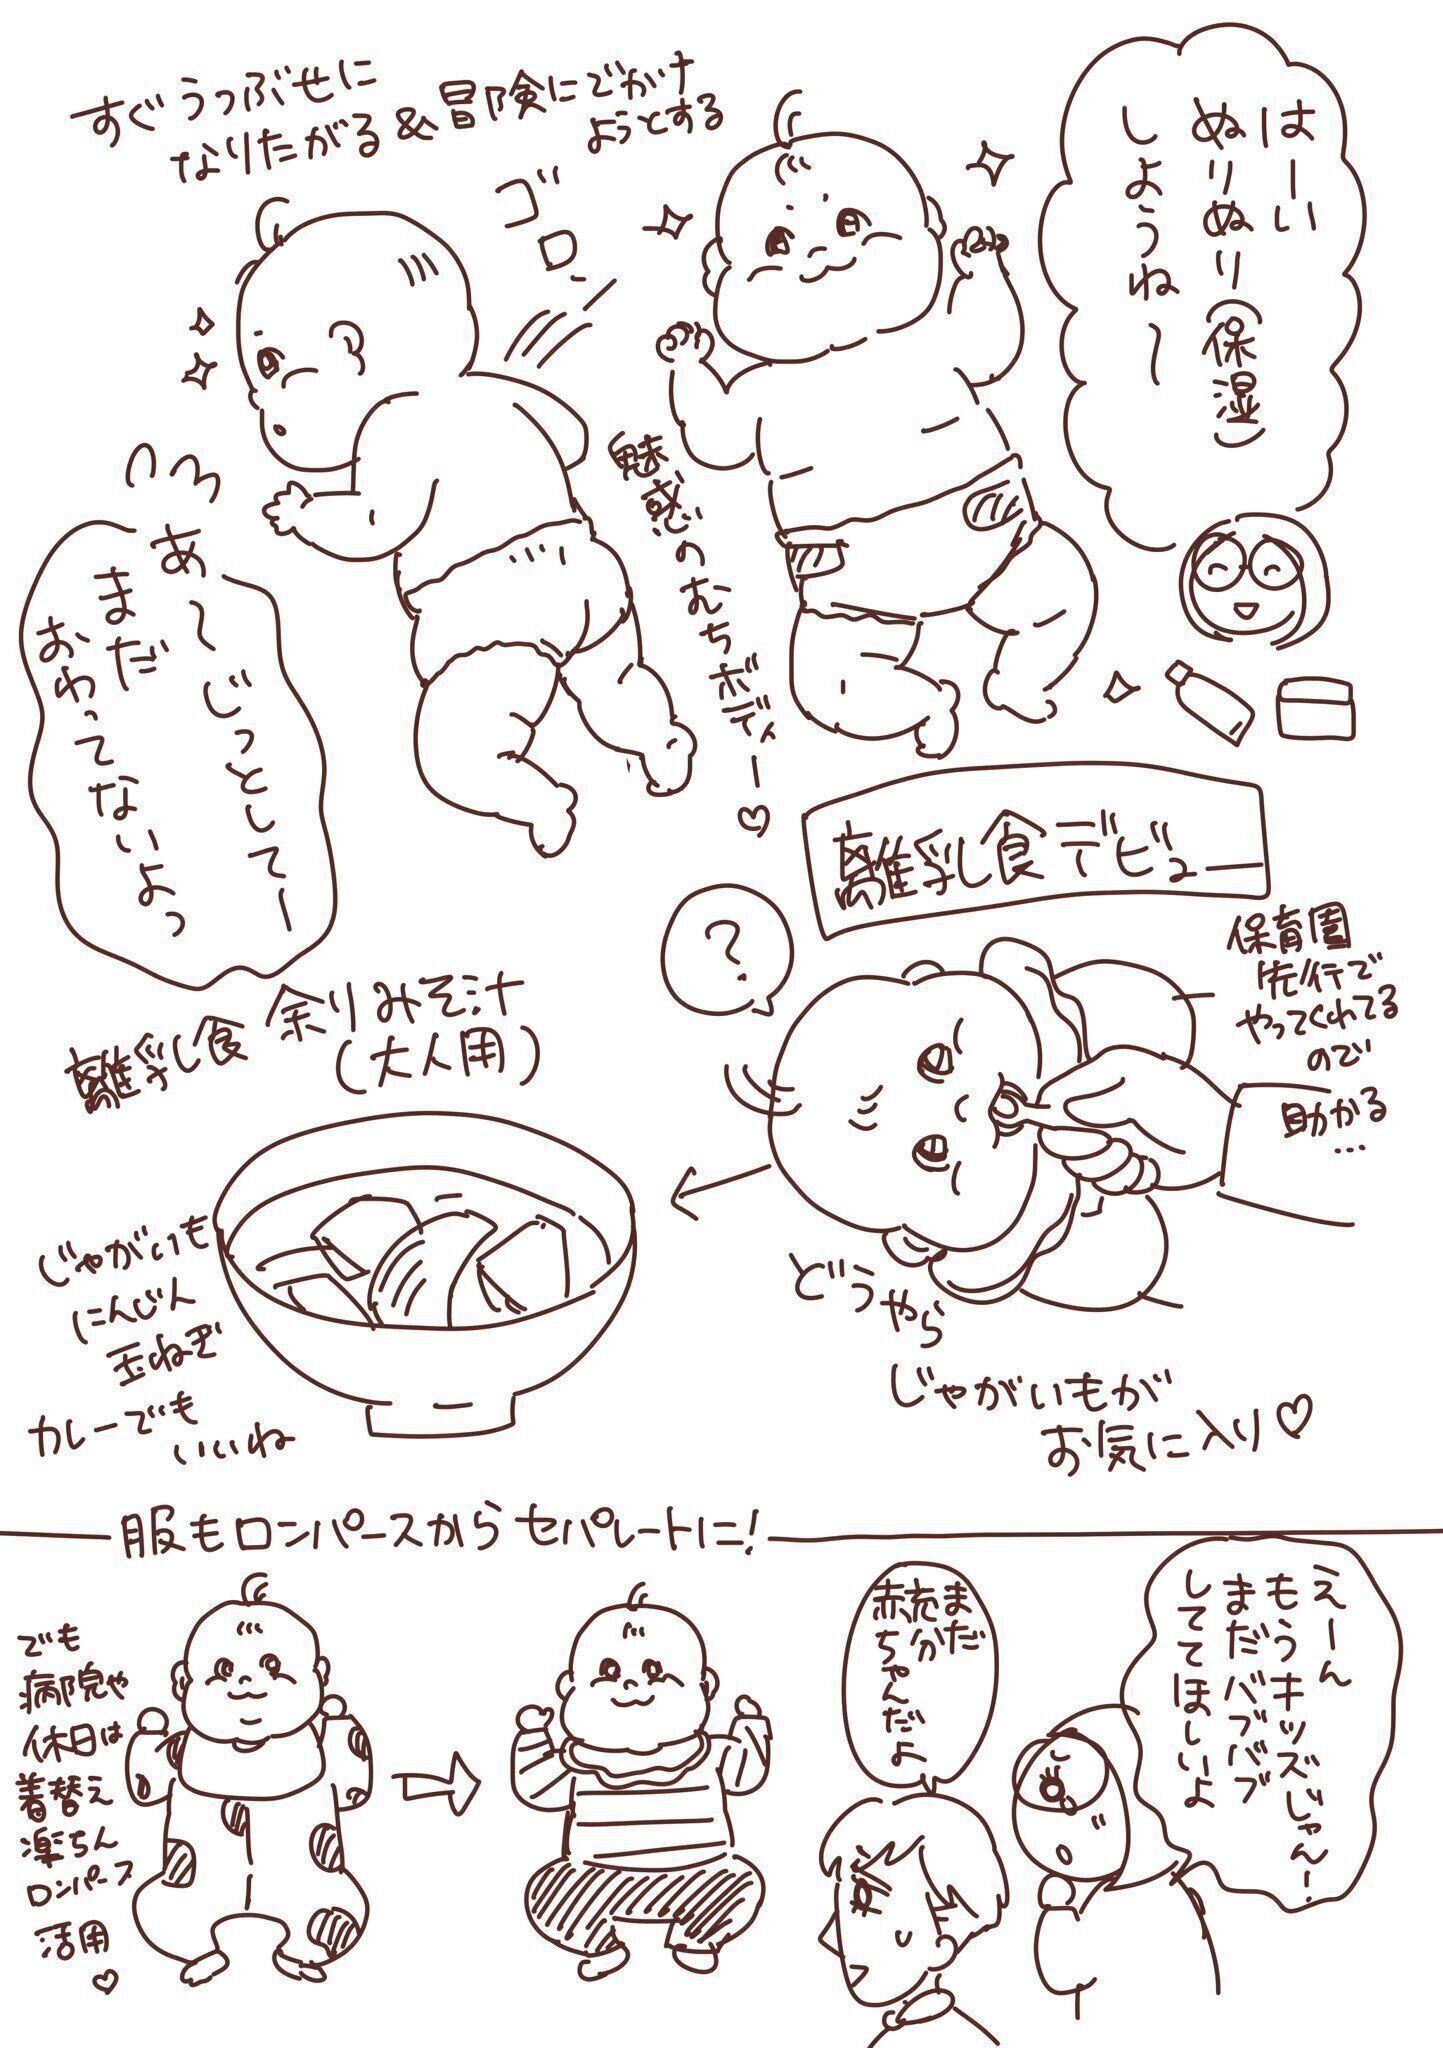 はーい
ぬりぬり(保湿)
しようね〜
すぐうつぶせに
なりたがる&冒険にでかけ
ようとする
ゴロ
魅惑のむちむちボディー♡
あ〜じっとしてー
まだ
おわってないよっ
離乳食デビュー
保育園
先行で
やってくれてる
ので
助かる
…
?
どうやら
じゃがいもが
お気に入り♡
離乳食 余りみそ汁
(大人用)
じゃがいも
にんじん
玉ねぎ
カレーでも
いいね
服もロンパースからセパレートに!
でも
病院や
休日は
着替え
楽ちん
ロンパース
活用
♡
えーん
もうキッズじゃんー
まだバブバブ
しててほしいよ
まだ
充分
赤ちゃんだよ